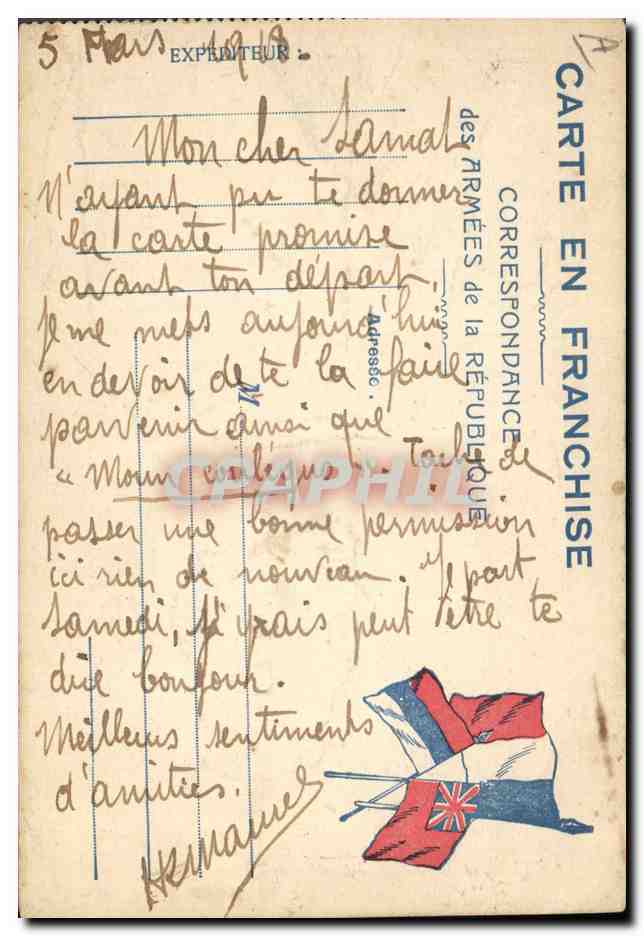 5 Mars 1918.
EXPÉDITEUR :
A
CARTE EN FRANCHISE
CORRESPONDANCE
des ARMÉES de la RÉPUBLIQUE
Adresse.
M
Mon cher Lamat
N'ayant pu te donner
la carte promise
avant ton départ,
je me mets aujourd'hui
en devoir de te la faire
parvenir ainsi que
« Moun coulègue ». Tache de
passer une bonne permission
ici rien de nouveau. Je part
samedi, j'irais peut être te
dire bonjour.
Meilleurs sentiments
d'amitiés.
CPAPHIL